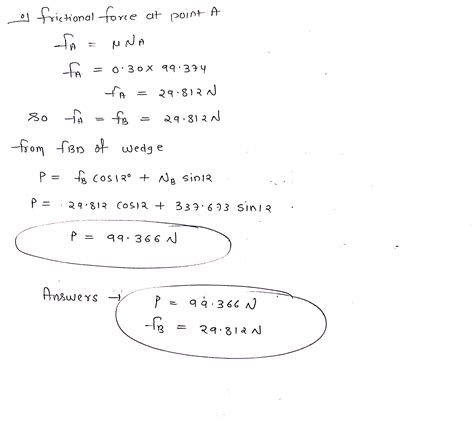 a) frictional force at point A
fA = μ NA
fA = 0.30 × 99.374
fA = 29.812 N
so fA = fB = 29.812 N
from FBD of wedge
P = fB cos12° + NB sin12
P = 29.812 cos12 + 337.673 sin12
P = 99.366 N
Answers → P = 99.366 N
fB = 29.812 N